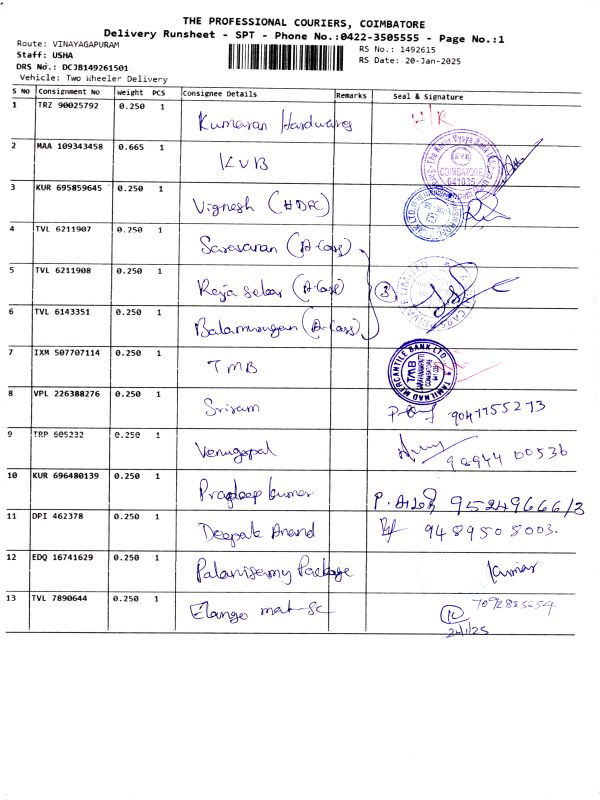 THE PROFESSIONAL COURIERS, COIMBATORE
Delivery Runsheet - SPT - Phone No.:0422-3505555 - Page No.:1
Route: VINAYAGAPURAM
Staff: USHA
DRS No.: DCJB149261501
Vehicle: Two Wheeler Delivery
RS No.: 1492615
RS Date: 20-Jan-2025
S No Consignment No Weight PCS Consignee Details Remarks Seal & Signature
1 TRZ 90025792 0.250 1 Kumaran Hardwares
2 MAA 109343458 0.665 1 KVB COIMBATORE 641035
3 KUR 695859645 0.250 1 Vignesh (HDFC)
4 TVL 6211907 0.250 1 Saravanan (A-Cass)
5 TVL 6211908 0.250 1 Raja sekar (A-Cass) 3
6 TVL 6143351 0.250 1 Balamurugan (A-Cass)
7 IXM 507707114 0.250 1 TMB TAMILNAD MERCANTILE BANK LTD. TMB
8 VPL 226388276 0.250 1 Sriram 9047755273
9 TRP 605232 0.250 1 Venugopal 98944 00536
10 KUR 696480139 0.250 1 Pragdeep kumar 9524966613
11 DPI 462378 0.250 1 Deepak Anand 9489508003.
12 EDQ 16741629 0.250 1 Palanisamy Package Kumar
13 TVL 7890644 0.250 1 Elango mat-sc